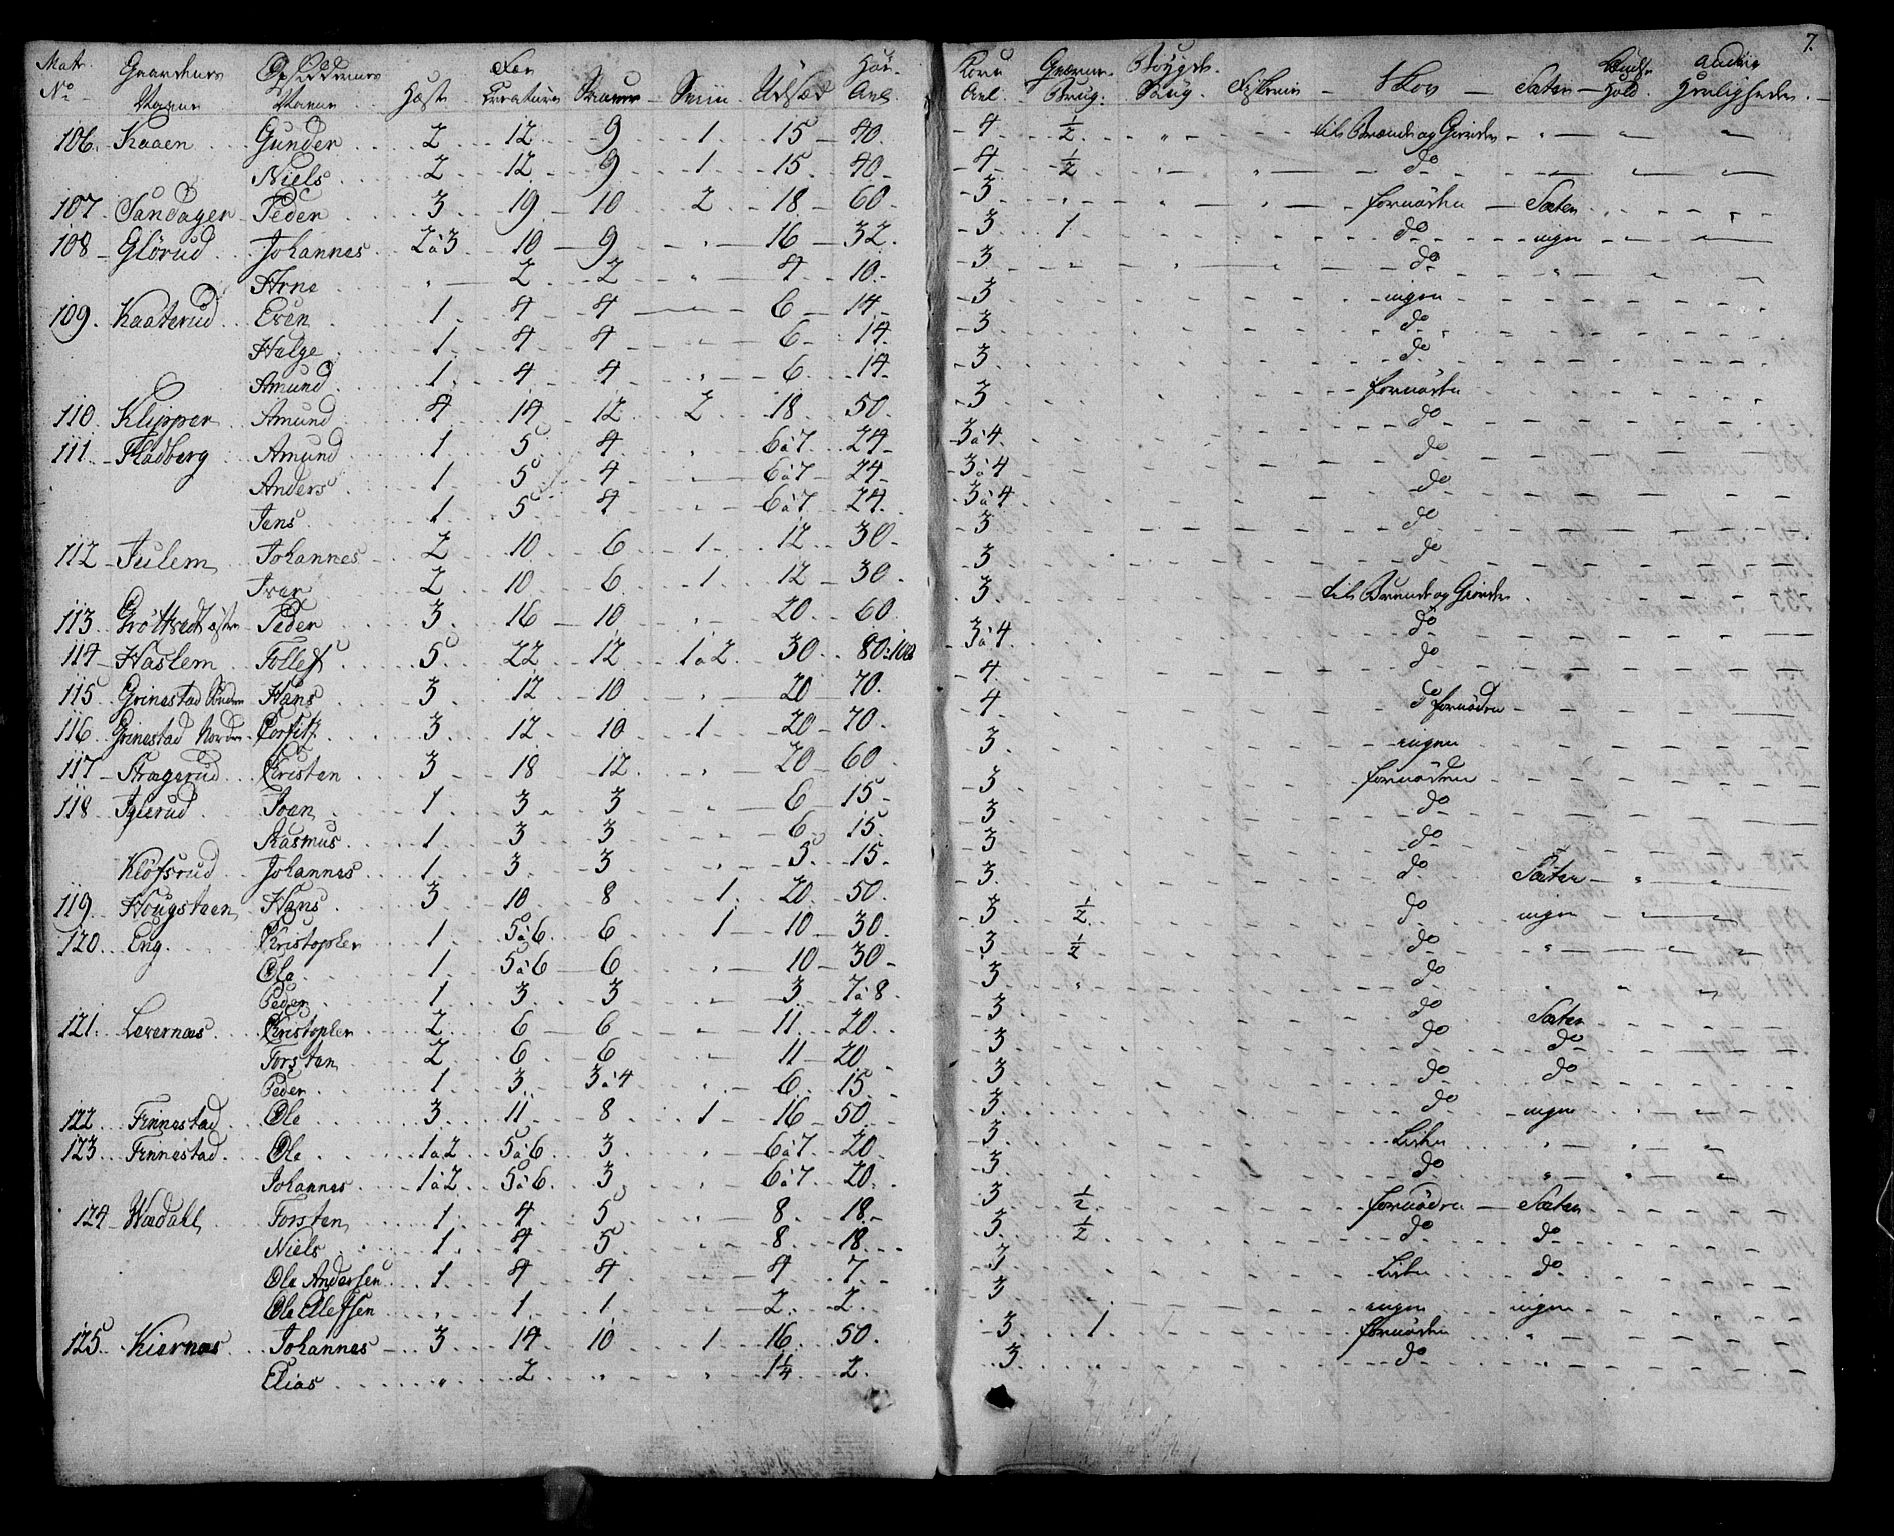 7.
Matr. No | Gaardenes Navne | Opsiddernes Navne | Heste | Stor Creature | Smaae | Sviin | Udsæd | Høe Avl. | Korn Avl. | Qværne Brug. | Bøigde Saug. | Fiskerie | Skov | Sæter | Havne Hold. | andre Herligheder.
106. Kaaen | Gunder | 2 | 12 | 9 | 1 | 15 | 40. | 4 | ½ | " | | til Brænde og Gierder | " | " | "
Niels | 2 | 12 | 9 | 1 | 15 | 40 | 4 | ½ | | | do
107. Sandager | Peder | 3 | 19 | 10 | 2 | 18 | 60 | 3 | " | " | " | fornøden | Sæter
108 Glørud | Johannes | 2 à 3 | 10 | 9 | " | 16 | 32. | 3 | 1 | | | do | ingen
Arne | " | 2 | 2 | " | 4 | 10 | 3 | | | | do | "
109. Kaaterud | Even | 1 | 4 | 4 | " | 6 | 14 | 3 | | | | ingen
Helge | 1 | 4 | 4 | " | 6 | 14 | 3 | | | | do
Amund | 1 | 4 | 4 | " | 6 | 14 | 3 | | | | do
110 Klypper | Amund | 4 | 14 | 12 | 2 | 18 | 50 | 3 | | | | fornøden
111. Fladberg | Amund | 1 | 5 | 4 | " | 6 à 7 | 24 | 3 à 4 | | | | do
Anders | 1 | 5 | 4 | " | 6 à 7 | 24 | 3 à 4 | | | | do
Jens | 1 | 5 | 4 | " | 6 à 7 | 24 | 3 à 4 | | | | do
112 Julem | Johannes | 2 | 10 | 6 | 1 | 12 | 30 | 3 | | | | do
Iver | 2 | 10 | 6 | 1 | 12 | 30 | 3 | | | | do
113. Grøttvedt østre | Peder | 3 | 16 | 10 | " | 20 | 60 | 3 | | | | til Brænde og Gierder
114 Haslem | Tollef | 5 | 22 | 12 | 1 à 2 | 30 | 80 à 100 | 3 à 4 | | | | do
115 Grinestad Søndre | Hans | 3 | 12 | 10 | " | 20 | 70 | 4 | | | | do
116. Grinestad Nordre | Corfitz | 3 | 12 | 10 | 1 | 20 | 70 | 4 | | | | do fornødne
117 Strægerud | Christen | 3 | 18 | 12 | " | 20 | 60 | 3 | | | | ingen
118 Iglerud | Joen | 1 | 3 | 3 | " | 6 | 15 | 3 | | | | fornødne
Rasmus | 1 | 3 | 3 | " | 6 | 15 | 3 | | | | do
Kløfsrud | Johannes | 1 | 3 | 3 | " | 5 | 15 | 3 | | | | do
119. Hougsteen | Hans | 3 | 10 | 8 | 1 | 20 | 50 | 3 | | | | do | Sæter
120. Eng | Christopher | 1 | 5 à 6 | 6 | 1 | 10 | 30 | 3 | ½ | | | do | ingen
Ole | 1 | 5 à 6 | 6 | " | 10 | 30 | 3 | ½ | | | do | "
Peder | 1 | 3 | 3 | " | 3 | 7 à 8 | 3 | " | | | do
121. Levernæs | Christopher | 2 | 6 | 6 | " | 11 | 20 | 3 | | | | do | Sæter
Torsten | 2 | 6 | 6 | " | 11 | 20 | 3 | | | | do | do
Peder | 1 | 3 | 3 à 4 | " | 6 | 15 | 3 | | | | do | do
122 Finnestad | Ole | 3 | 11 | 8 | 1 | 16 | 50 | 3 | | | | do | ingen
123. Finnestad | Ole | 1 à 2 | 5 à 6 | 3 | " | 6 à 7 | 20 | 3 | | | | Lidet | "
Johannes | 1 à 2 | 5 à 6 | 3 | " | 6 à 7 | 20 | 3 | | | | do | "
124 Wædahl | Torsten | 1 | 4 | 5 | " | 8 | 18 | 3 | ½ | | | fornødne | Sæter
Niels | 1 | 4 | 5 | " | 8 | 18 | 3 | ½ | | | do | do
Ole Andersen | 1 | 4 | 4 | " | 4 | 7 | 3 | | | | Lidet | do
Ole Ellefsen | " | 1 | 1 | " | 2 | 2 | 3 | | | | ingen | ingen
125. Kiernæs | Johannes | 3 | 14 | 10 | 1 | 16 | 50 | 3 | 1 | | | fornøden | "
Elias | " | 2 | " | " | 1¼ | 2 | 3 | " | | | do | "